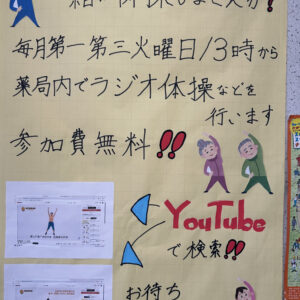 体操しませんか!
毎月第一第三火曜日13時から
薬局内でラジオ体操などを
行います
参加費無料!!
YouTube
で検索!!
お待ち